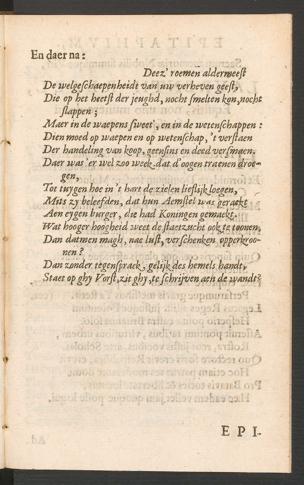 En daer na:
Deez' roemen aldermeest
De welgeschaepenheidt van uw verheven geest,
Die op het heetst der jeughd, nocht smelten kon, nocht
slappen;
Maer in de waepens sweet, en in de wetenschappen:
Dien moed op waepen en op wetenschap, 't verstaen
Der handeling van koop, geensins en deed versmaen.
Daer was 'er wel zoo week, dat d'oogen traenen droo-
gen,
Tot tuygen hoe in 't hart de zielen lieflijk loegen,
Mits zy beleefden, dat hun Aemstel was geraekt
Aen eygen burger, die had Koningen gemaekt.
Wat hooger hoogheid weet de staetzucht ook te toonen,
Dan datmen magh, nae lust, verschenken opperkroo-
nen?
Dan zonder tegenspraek, gelijk des hemels handt,
Staet op ghy Vorst, zit ghy, te schrijven aen de wandt?
E P I-